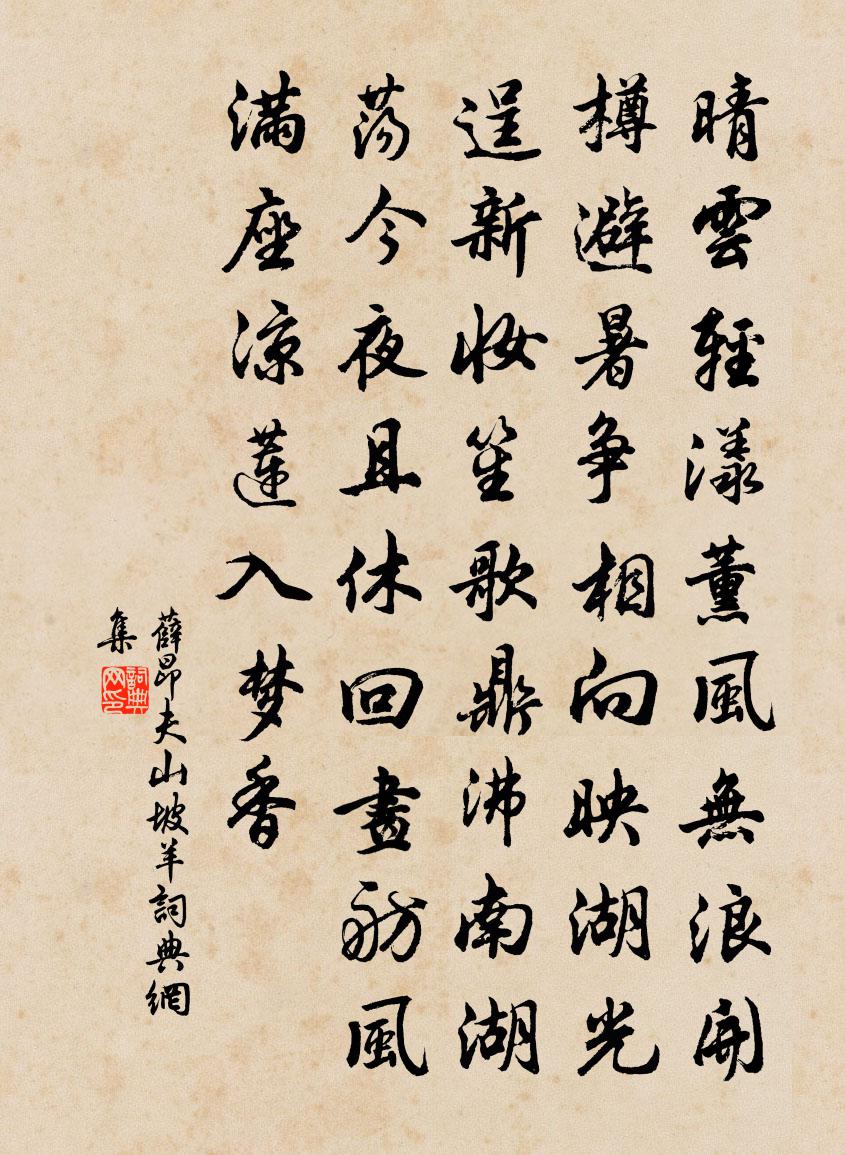 晴雲輕漾薰風無浪開
樽避暑争相向映湖光
逞新妝笙歌鼎沸南湖
蕩今夜且休回畫舫風
满座凉蓮入梦香
薛昂夫山坡羊詞典網
集
詞典网印